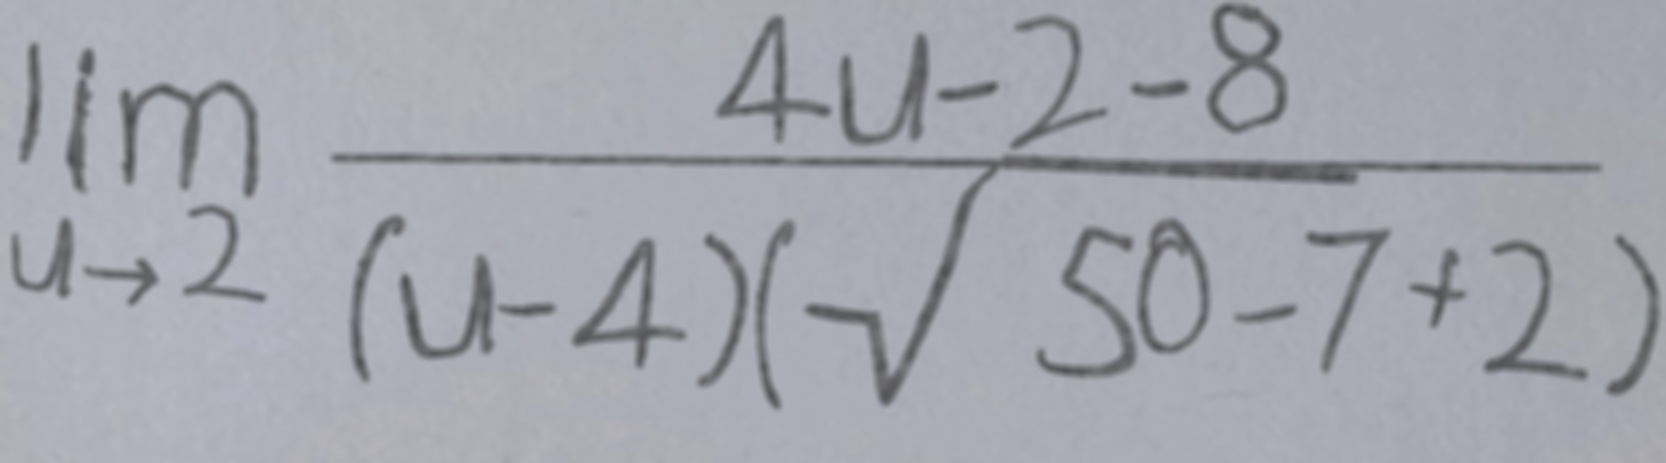 lim_{u→2} \frac{4u-2-8}{(u-4)(\sqrt{50-7}+2)}